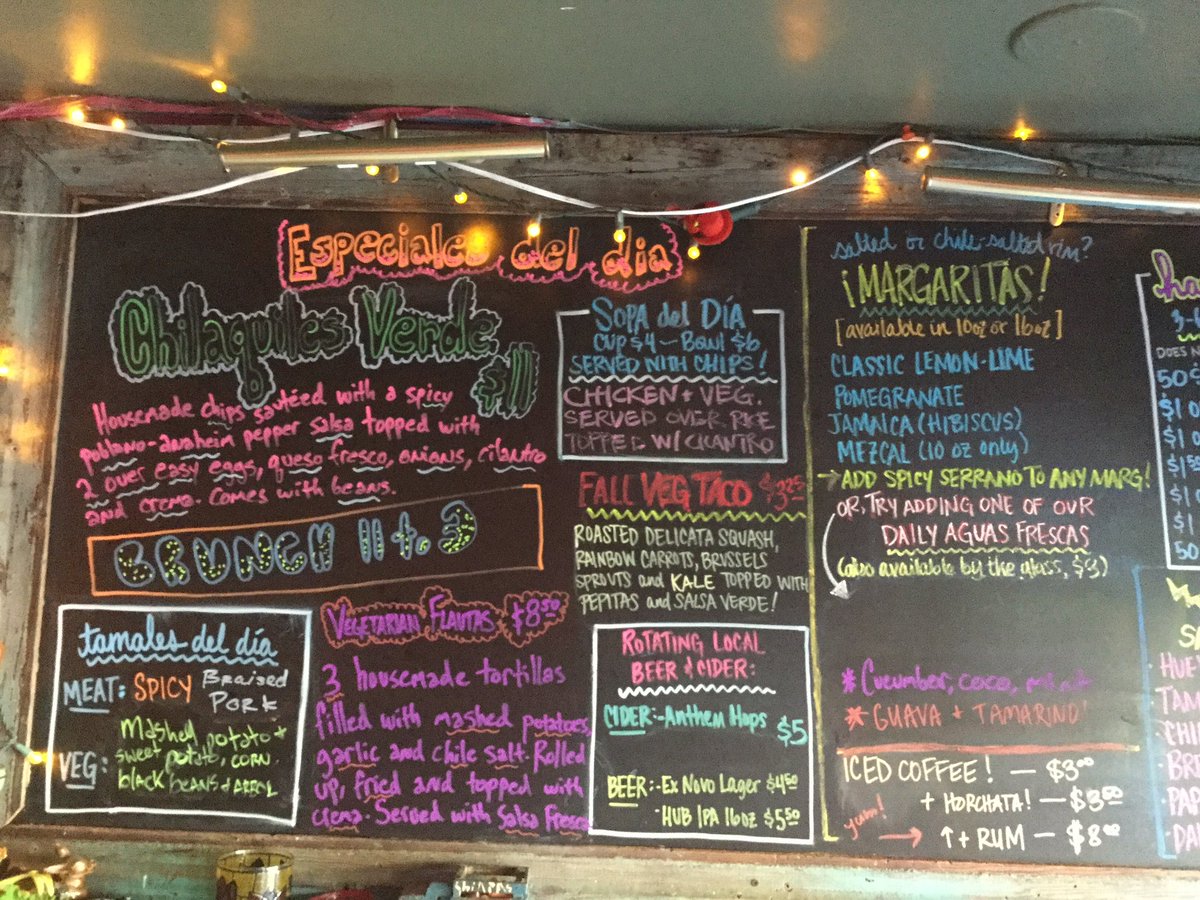 Especiales del dia
Chilaquiles Verde
$11
Housemade chips sautéed with a spicy
poblano-anaheim pepper salsa topped with
2 over easy eggs, queso fresco, onions, cilantro
and crema. Comes with beans.
BRUNCH 11 to 3
tamales del día
MEAT: SPICY Braised
PORK
Mashed potato +
VEG: sweet potato, corn
black beans & arroz
Vegetarian Flautas $8.50
3 housemade tortillas
filled with mashed potatoes,
garlic and chile salt. Rolled
up, fried and topped with
crema. Served with Salsa Fresca
SOPA del DÍA
CUP $4 — Bowl $6
SERVED WITH CHIPS!
CHICKEN + VEG.
SERVED OVER RICE
TOPPED W/ CILANTRO
FALL VEG TACO $3.25
ROASTED DELICATA SQUASH,
RAINBOW CARROTS, BRUSSELS
SPROUTS and KALE TOPPED WITH
PEPITAS and SALSA VERDE!
ROTATING LOCAL
BEER & CIDER:
CIDER:-Anthem Hops $5
BEER:-Ex Novo Lager $4.50
·HUB IPA 16oz $5.50
salted or chile-salted rim?
¡MARGARITAS!
[available in 10oz or 16oz]
CLASSIC LEMON-LIME
POMEGRANATE
JAMAICA (HIBISCUS)
MEZCAL (10 oz only)
→ADD SPICY SERRANO TO ANY MARG!
OR, TRY ADDING ONE OF OUR
DAILY AGUAS FRESCAS
(also available by the glass, $3)
* Cucumber, coco, mint
* GUAVA + TAMARIND!
ICED COFFEE! — $3.00
+ HORCHATA! — $3.50
yum! → ↑ + RUM — $8.00
ha
3-
DOES
50
$1
$1
$1.50
$1
$1
50
SA
·HUE
TAM
·CHI
·BRE
·PAP
·DA